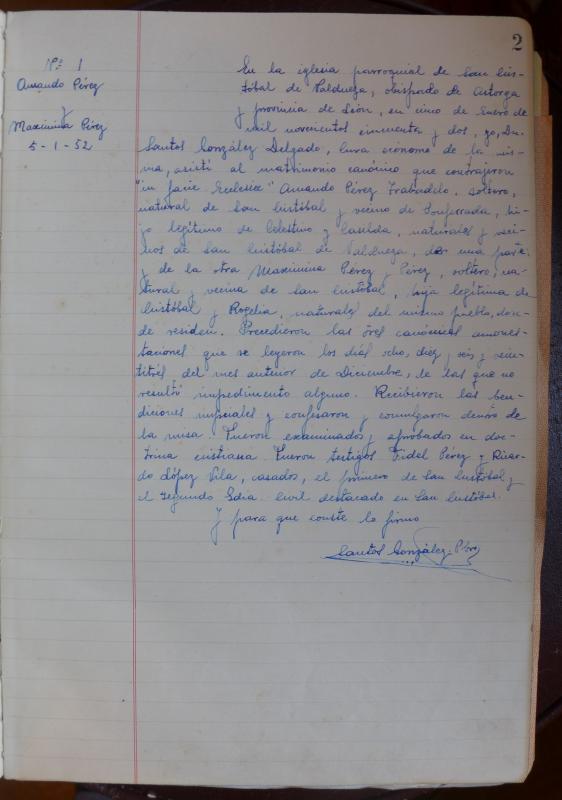 2
Nº 1
Amando Pérez
y
Maximina Pérez
5-1-52
En la iglesia parroquial de San Cris-
tóbal de Valdueza, obispado de Astorga
y provincia de León, en cinco de Enero de
mil novecientos cincuenta y dos, yo, Dn.
Santos González Delgado, Cura ecónomo de la mis-
ma, asistí al matrimonio canónico que contrajeron
"in facie Ecclesiae" Amando Pérez Trabadelo, soltero,
natural de San Cristóbal y vecino de Ponferrada, hi-
jo legítimo de Celestino y Casilda, naturales y veci-
nos de San Cristóbal de Valdueza, de una parte
y de la otra Maximina Pérez y Pérez, soltera, na-
tural y vecina de San Cristóbal, hija legítima de
Cristóbal y Rogelia, naturales del mismo pueblo, don-
de residen. Precedieron las tres canónicas amones-
taciones que se leyeron los días ocho, diez y seis y vein-
titrés del mes anterior de Diciembre, de las que no
resultó impedimento alguno. Recibieron las ben-
diciones nupciales y confesaron y comulgaron dentro de
la misa. Fueron examinados y aprobados en doc-
trina cristiana. Fueron testigos Fidel Pérez y Ricar-
do López Vila, casados, el primero de San Cristóbal y
el segundo Gdia. Civil destacado en San Cristóbal.
Y para que conste lo firmo
Santos González Pbro